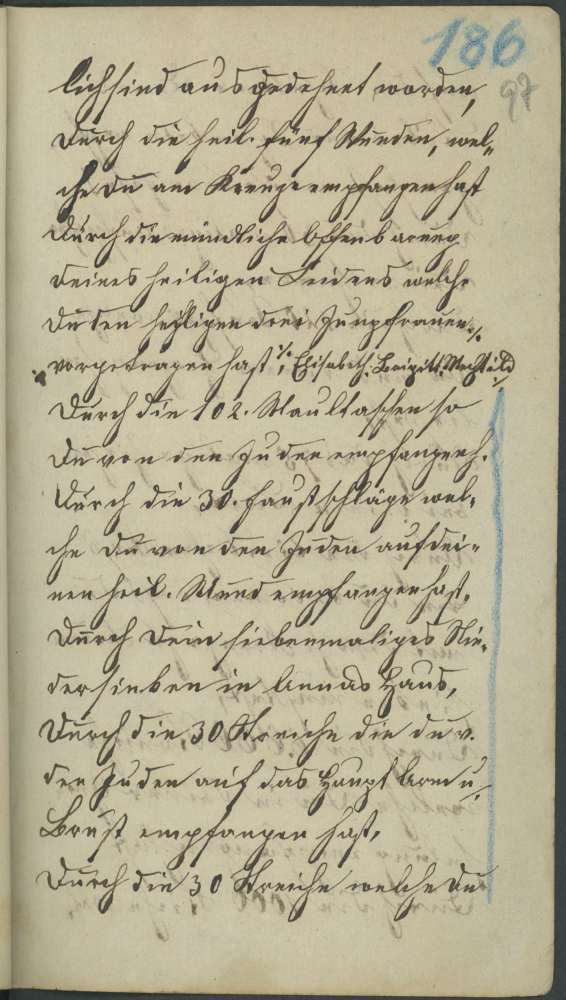 186
97
lich sind ausgedehnet worden,
Durch die heil. fünf Wunden, wel„
che du am Kreuze empfangen hast
Durch die mündliche Offenbarung
deines heiligen Leidens welche
du den heiligen drei Jungfrauen ·/.
vorgetragen hast ·/., Elisabeth, Brigitt, Mechtild
Durch die 102. Maultaschen so
du von den Juden empfangen h.
Durch die 30. Faustschläge wel„
che du von den Juden auf dei„
nen heil. Mund empfangen hast,
Durch dein siebenmaliges Nie„
dersinken in Annas Haus,
Durch die 30 Streiche die du v.
den Juden auf das Haupt Arm u.
Brust empfangen hast,
Durch die 30 Streiche welche du